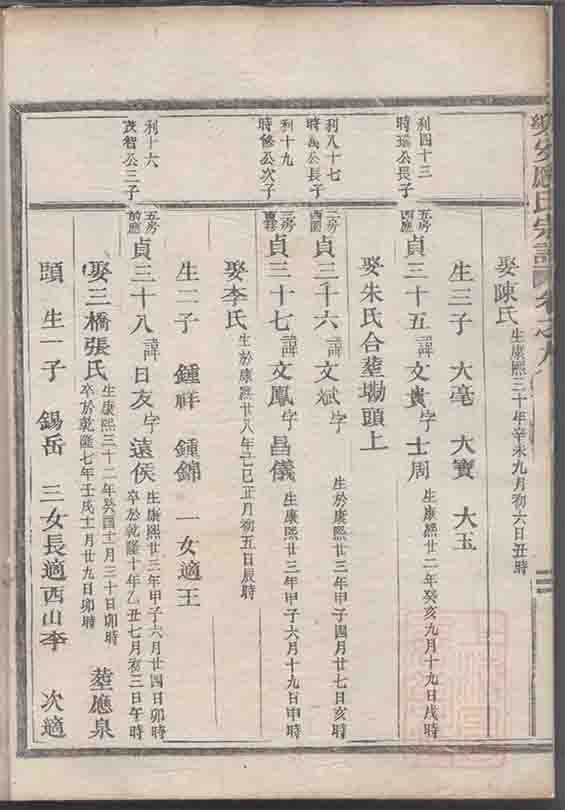 應氏宗譜 卷之九
娶陳氏 生康熙三十年辛未九月初六日丑時
生三子 大亳 大寶 大玉
利四十三
時瑞公長子
五房
四應
貞三十五 諱文貴 字士周 生康熙廿二年癸亥九月十九日戌時
娶朱氏合塟塘頭上
利八十七
時萬公長子
二房
貞三十六 諱文斌 字 生於康熙廿三年甲子四月廿七日亥時
利十九
時修公次子
三房
貞三十七 諱文鳳 字昌儀 生於康熙廿三年甲子六月十九日申時
娶李氏 生於康熙廿八年己巳正月初五日辰時
生二子 鍾祥 鍾錦 一女適王
利十六
茂智公三子
五房
前應
貞三十八 諱日友 字遠侯 生康熙廿三年甲子六月廿四日卯時
卒於乾隆十年乙丑七月初三日午時
娶三橋張氏 生康熙三十二年癸酉十月三十日卯時
卒於乾隆七年壬戌十一月廿九日卯時 塟應泉
頭 生一子 錫岳 三女長適西山李 次適